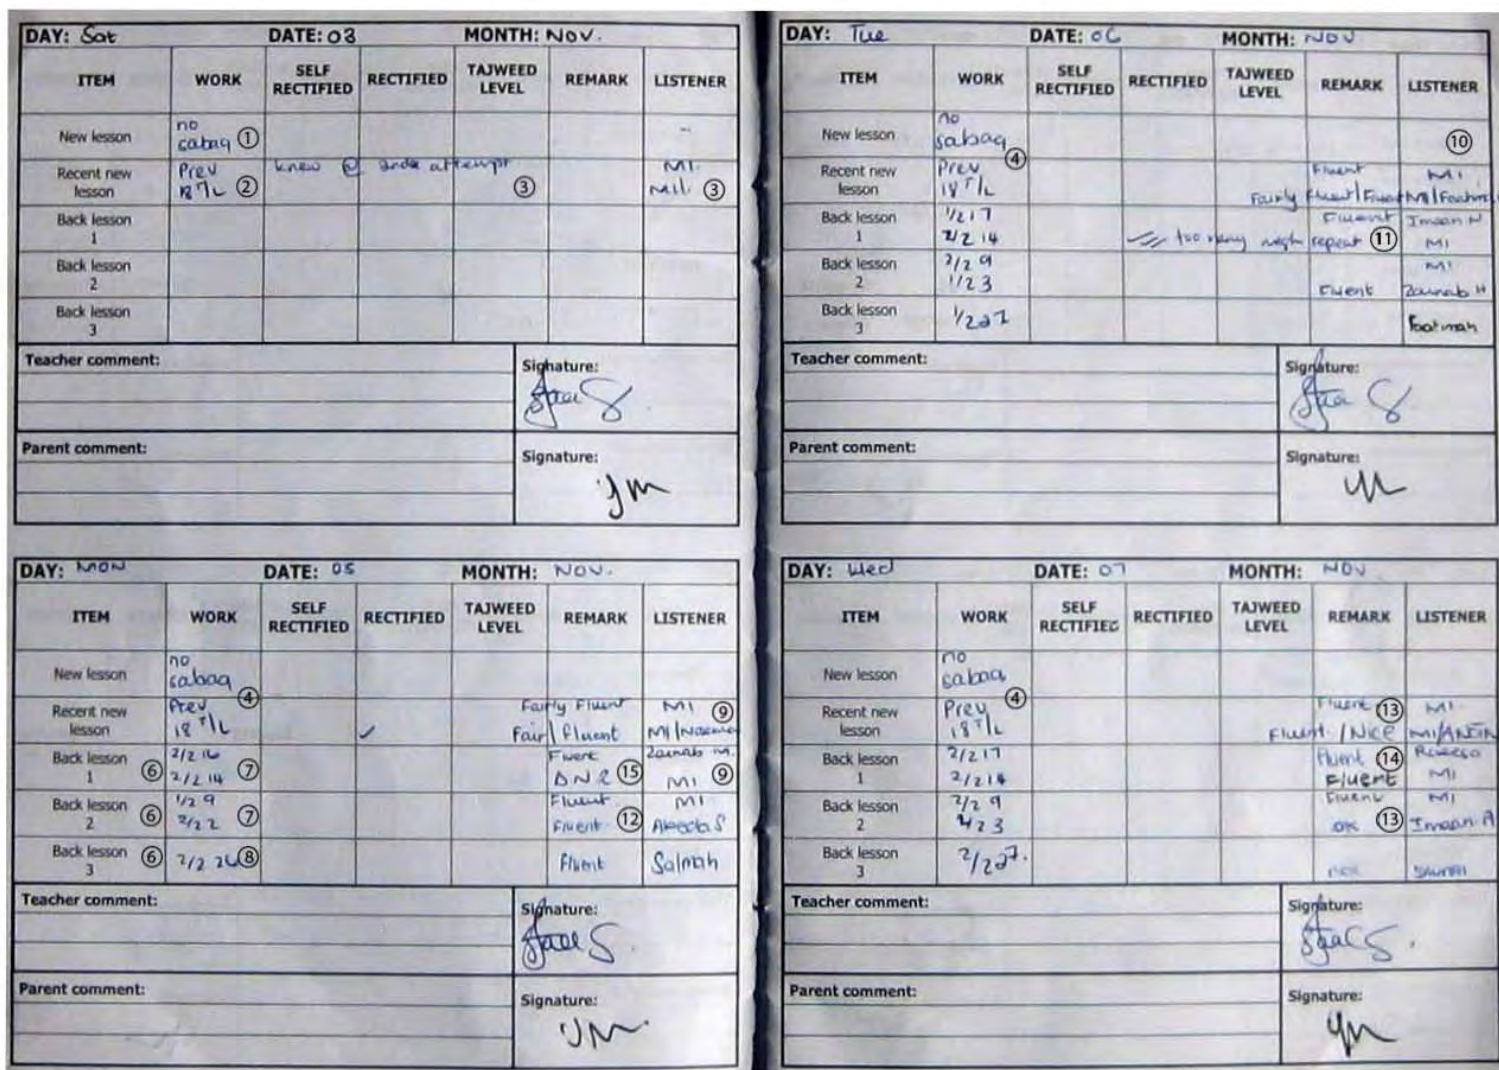 DAY: Sat DATE: 03 MONTH: Nov.
ITEM WORK SELF RECTIFIED RECTIFIED TAJWEED LEVEL REMARK LISTENER
New lesson no sabaq ①
Recent new lesson Prev 18 T/L ② knew @ attempt ③ MI. ③
Back lesson 1
Back lesson 2
Back lesson 3
Teacher comment: Signature:
Parent comment: Signature:
DAY: MON DATE: 05 MONTH: Nov.
ITEM WORK SELF RECTIFIED RECTIFIED TAJWEED LEVEL REMARK LISTENER
New lesson no sabaq ④
Recent new lesson Prev 18 T/L ✓ Fairly Fluent MI ⑨
Fair/fluent
Back lesson 1 ⑥ 2/2 16 Fluent Zainab M.
2/2 14 ⑦ DN2 ⑮ MI ⑨
Back lesson 2 ⑥ 1/2 9 Fluent MI
2/2 2 ⑦ Fluent ⑫
Back lesson 3 ⑥ 2/2 26 ⑧ Fluent Salmah
Teacher comment: Signature:
Parent comment: Signature:
DAY: Tue DATE: 06 MONTH: NOV
ITEM WORK SELF RECTIFIED RECTIFIED TAJWEED LEVEL REMARK LISTENER
New lesson no sabaq ④ ⑩
Recent new lesson Prev Fluent MI
18 T/L Fairly Fluent
Back lesson 1 1/2 17 Fluent Imaan N
2/2 14 too many repeat ⑪ MI
Back lesson 2 2/2 9 MI
1/2 3 Fluent Zainab H
Back lesson 3 1/2 27 Faatimah
Teacher comment: Signature:
Parent comment: Signature:
DAY: Wed DATE: 07 MONTH: NOV
ITEM WORK SELF RECTIFIED RECTIFIED TAJWEED LEVEL REMARK LISTENER
New lesson no sabaq ④
Recent new lesson Prev Fluent ⑬ MI
18 T/L Fluent/Nice
Back lesson 1 2/2 17 Fluent ⑭
2/2 14 Fluent MI
Back lesson 2 2/2 9 Fluent MI
2/2 3 OK ⑬ Imaan A
Back lesson 3 2/2 27.
Teacher comment: Signature:
Parent comment: Signature: